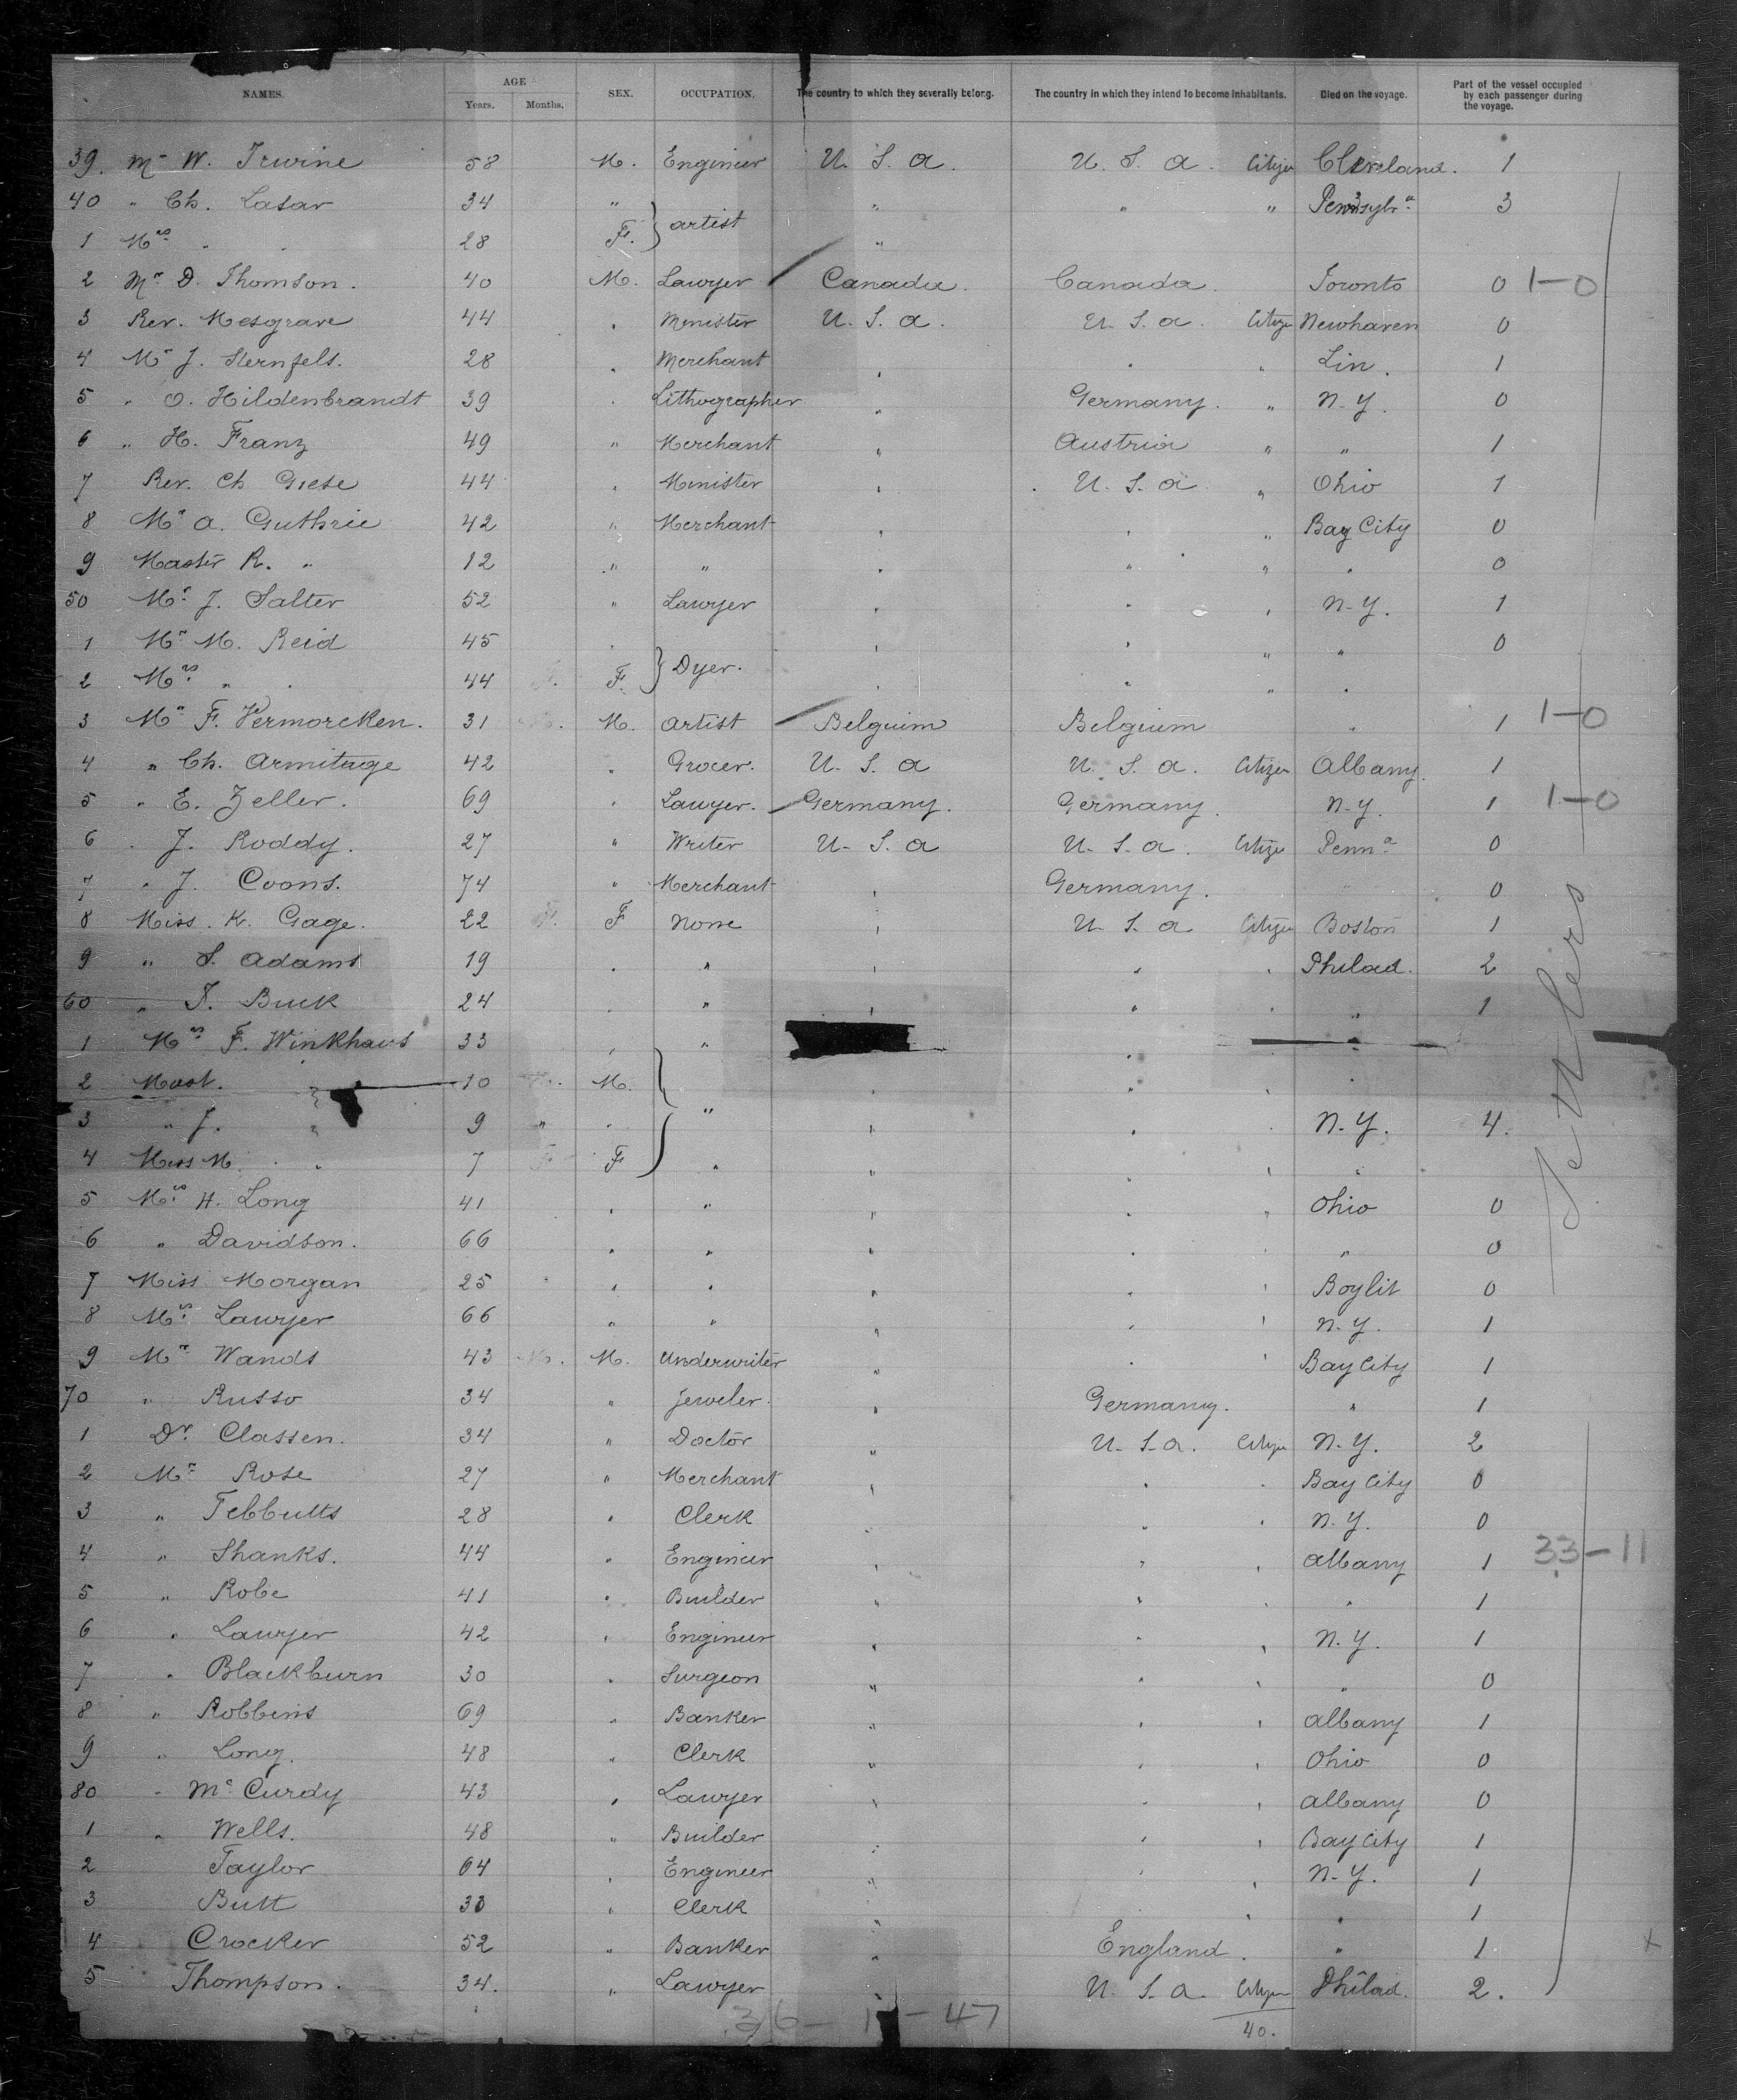 NAMES. AGE Years. Months. SEX. OCCUPATION. The country to which they severally belong. The country in which they intend to become inhabitants. Died on the voyage. Part of the vessel occupied by each passenger during the voyage.
39. Mr W. Irwine 58 M. Engineer U. S. a. U. S. a. Citizen Cleveland. 1
40 " Ch. Lasar 34 " } artist " " " Pennsylva 3
1 Mrs " 28 F. "
2 Mr D. Thomson. 40 M. Lawyer Canada. Canada. Toronto 0 1-0
3 Rev. Mesgrave 44 " Menister U. S. a. U. S. a. Citizen Newhaven 0
4 Mr J. Sternfels. 28 " Merchant " " " Lin. 1
5 " O. Hildenbrandt 39 " Lithographer " Germany. " N.Y. 0
6 " H. Franz 49 " Merchant " Austria " " 1
7 Rev. Ch Giese 44 " Menister " U. S. a. " Ohio 1
8 Mr a. Guthrie 42 " Merchant " " " Bay City 0
9 Master R. " 12 " " " " " " 0
50 Mr J. Salter 52 " Lawyer " " " N.Y. 1
1 Mr M. Reid 45 " } Dyer. " " " " 0
2 Mrs " 44 F. " " " "
3 Mr F. Vermorcken. 31 M. artist Belguim Belgium " 1 1-0
4 " Ch. Armitage 42 " Grocer. U. S. a U. S. a. Citizen Albany. 1
5 " E. Zeller. 69 " Lawyer. Germany. Germany. N.Y. 1 1-0
6 " J. Roddy. 27 " Writer U. S. a U. S. a. Citize Penna 0
7 " J. Coons. 74 " Merchant " Germany. " 0
8 Miss. K. Gage. 22 F. F None " U. S. a Citizen Boston 1
9 " S. Adams 19 " " " " " Philad. 2
60 " T. Buck 24 " " " " " " 1
1 Mrs F. Winkhaus 33 " " "
2 Mast. 10 M. " " "
3 " J. " 9 " " " " " " N.Y. 4.
4 Miss M. " 7 F F " " " " "
5 Mrs H. Long 41 " " " " " Ohio 0
6 " Davidson. 66 " " " " " " 0
7 Miss Morgan 25 " " " " " Boylit 0
8 Mrs Lawyer 66 " " " " " N.Y. 1
9 Mr Wands 43 M. M. Underwriter " " " Bay City 1
70 " Russo 34 " Jeweler. " Germany. " 1
1 Dr Classen. 34 " Doctor " U. S. a. Citizen N.Y. 2
2 Mr Rose 27 " Merchant " " " Bay City 0
3 " Tebbutts 28 " Clerk " " " N.Y. 0
4 " Shanks. 44 " Engineer " " " Albany 1 33-11
5 " Robe 41 " Builder " " " " 1
6 " Lawyer 42 " Engineer " " " N.Y. 1
7 " Blackburn 30 " Surgeon " " " " 0
8 " Robbins 69 " Banker " " " Albany 1
9 " Long. 48 " Clerk " " " Ohio 0
80 " Mc Curdy 43 " Lawyer " " " Albany 0
1 " Wells. 48 " Builder " " " Bay City 1
2 Taylor 64 " Engineer " " " N.Y. 1
3 Butt " Clerk " " " " 1
4 Crocker 52 " Banker " England. " 1 x
5 Thompson. 34. " Lawyer " U. S. a. Citizen Philad. 2.
40.